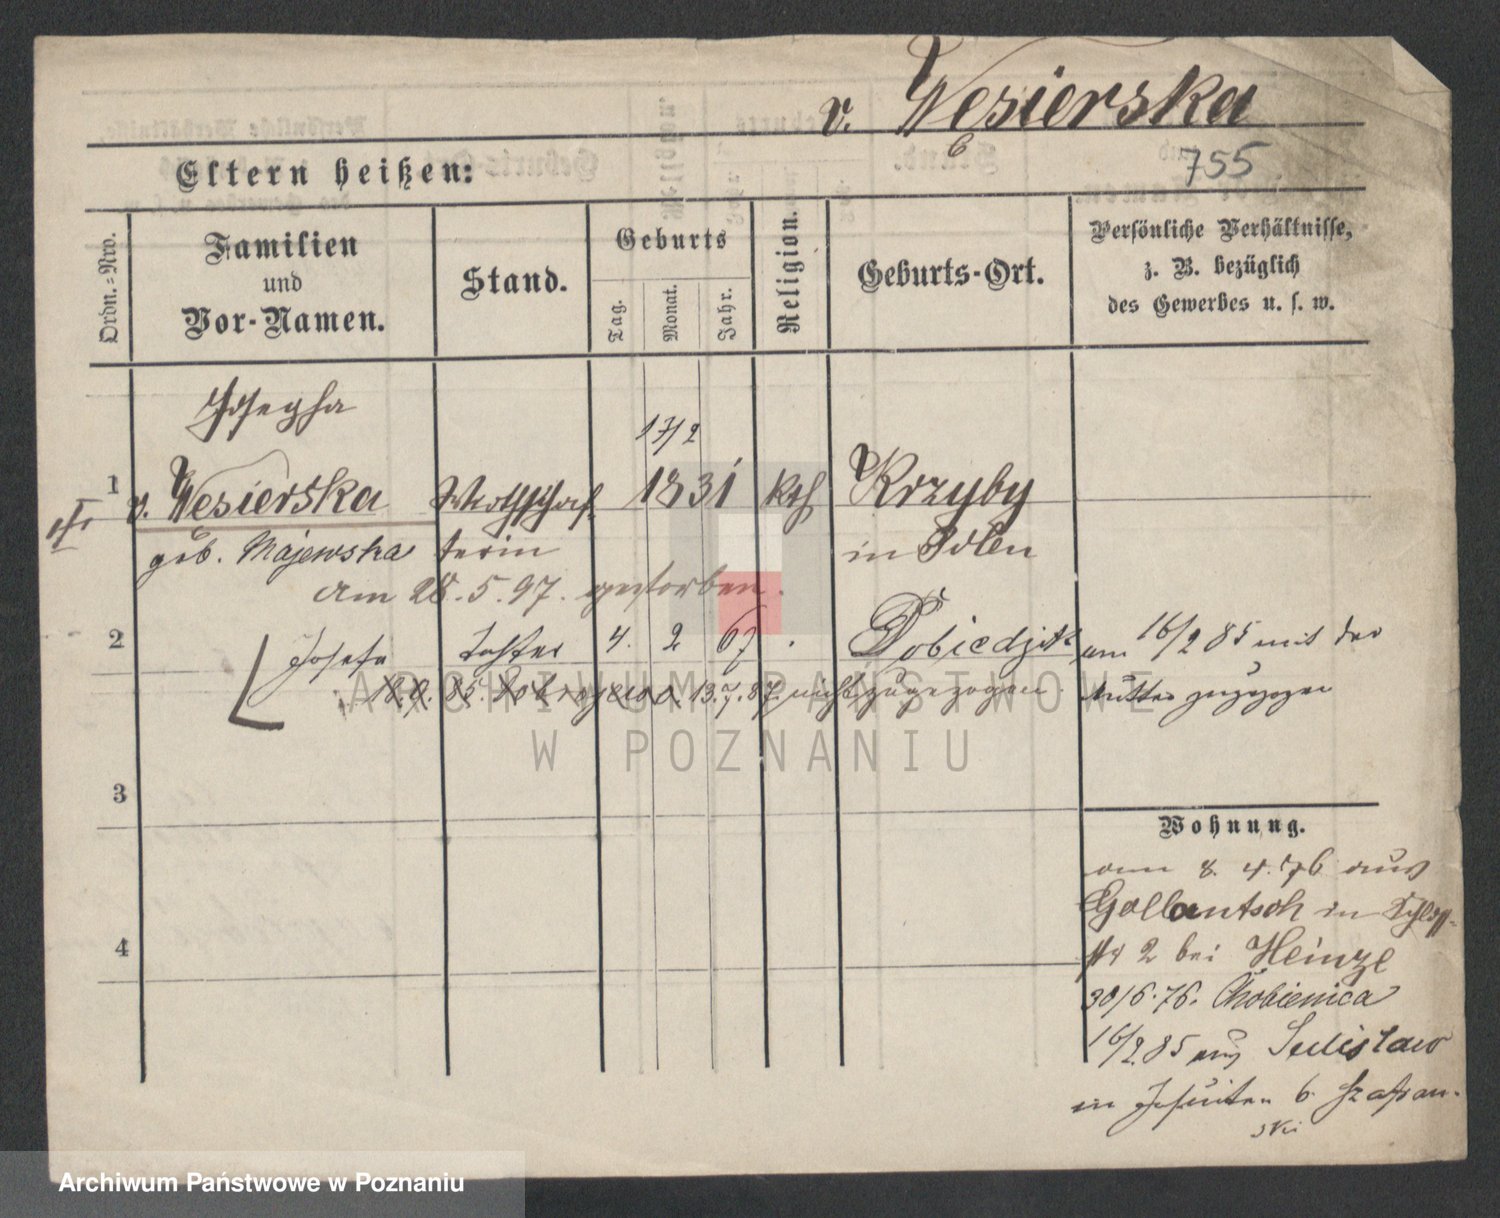 v. Wesierska
6
755
Eltern heißen:
Ordn.-Nro.
Familien
und
Vor-Namen.
Stand.
Geburts
Tag.
Monat.
Jahr.
Religion.
Geburts-Ort.
Persönliche Verhältnisse,
z. B. bezüglich
des Gewerbes u. s. w.
Josepha
17/2
1 v. Wesierska Wirthschaf- 1831 kth Krzyby
geb. Majewska terin in Polen
am 28.5.97. gestorben.
2 Josefa Tochter 4. 2 67 am 16/2 85 mit der
13.7.87. nicht zugezogen. Mutter zugezogen
3
4
Wohnung.
am 8. 4. 76 aus
Gollantsch in Schloß-
str 2 bei Heinze
30/6.76. Chobienica
16/2 85 aus Sulislaw
in Jesuiten 6. Szafran-
ski
ARCHIWUM PAŃSTWOWE
W POZNANIU
Archiwum Państwowe w Poznaniu